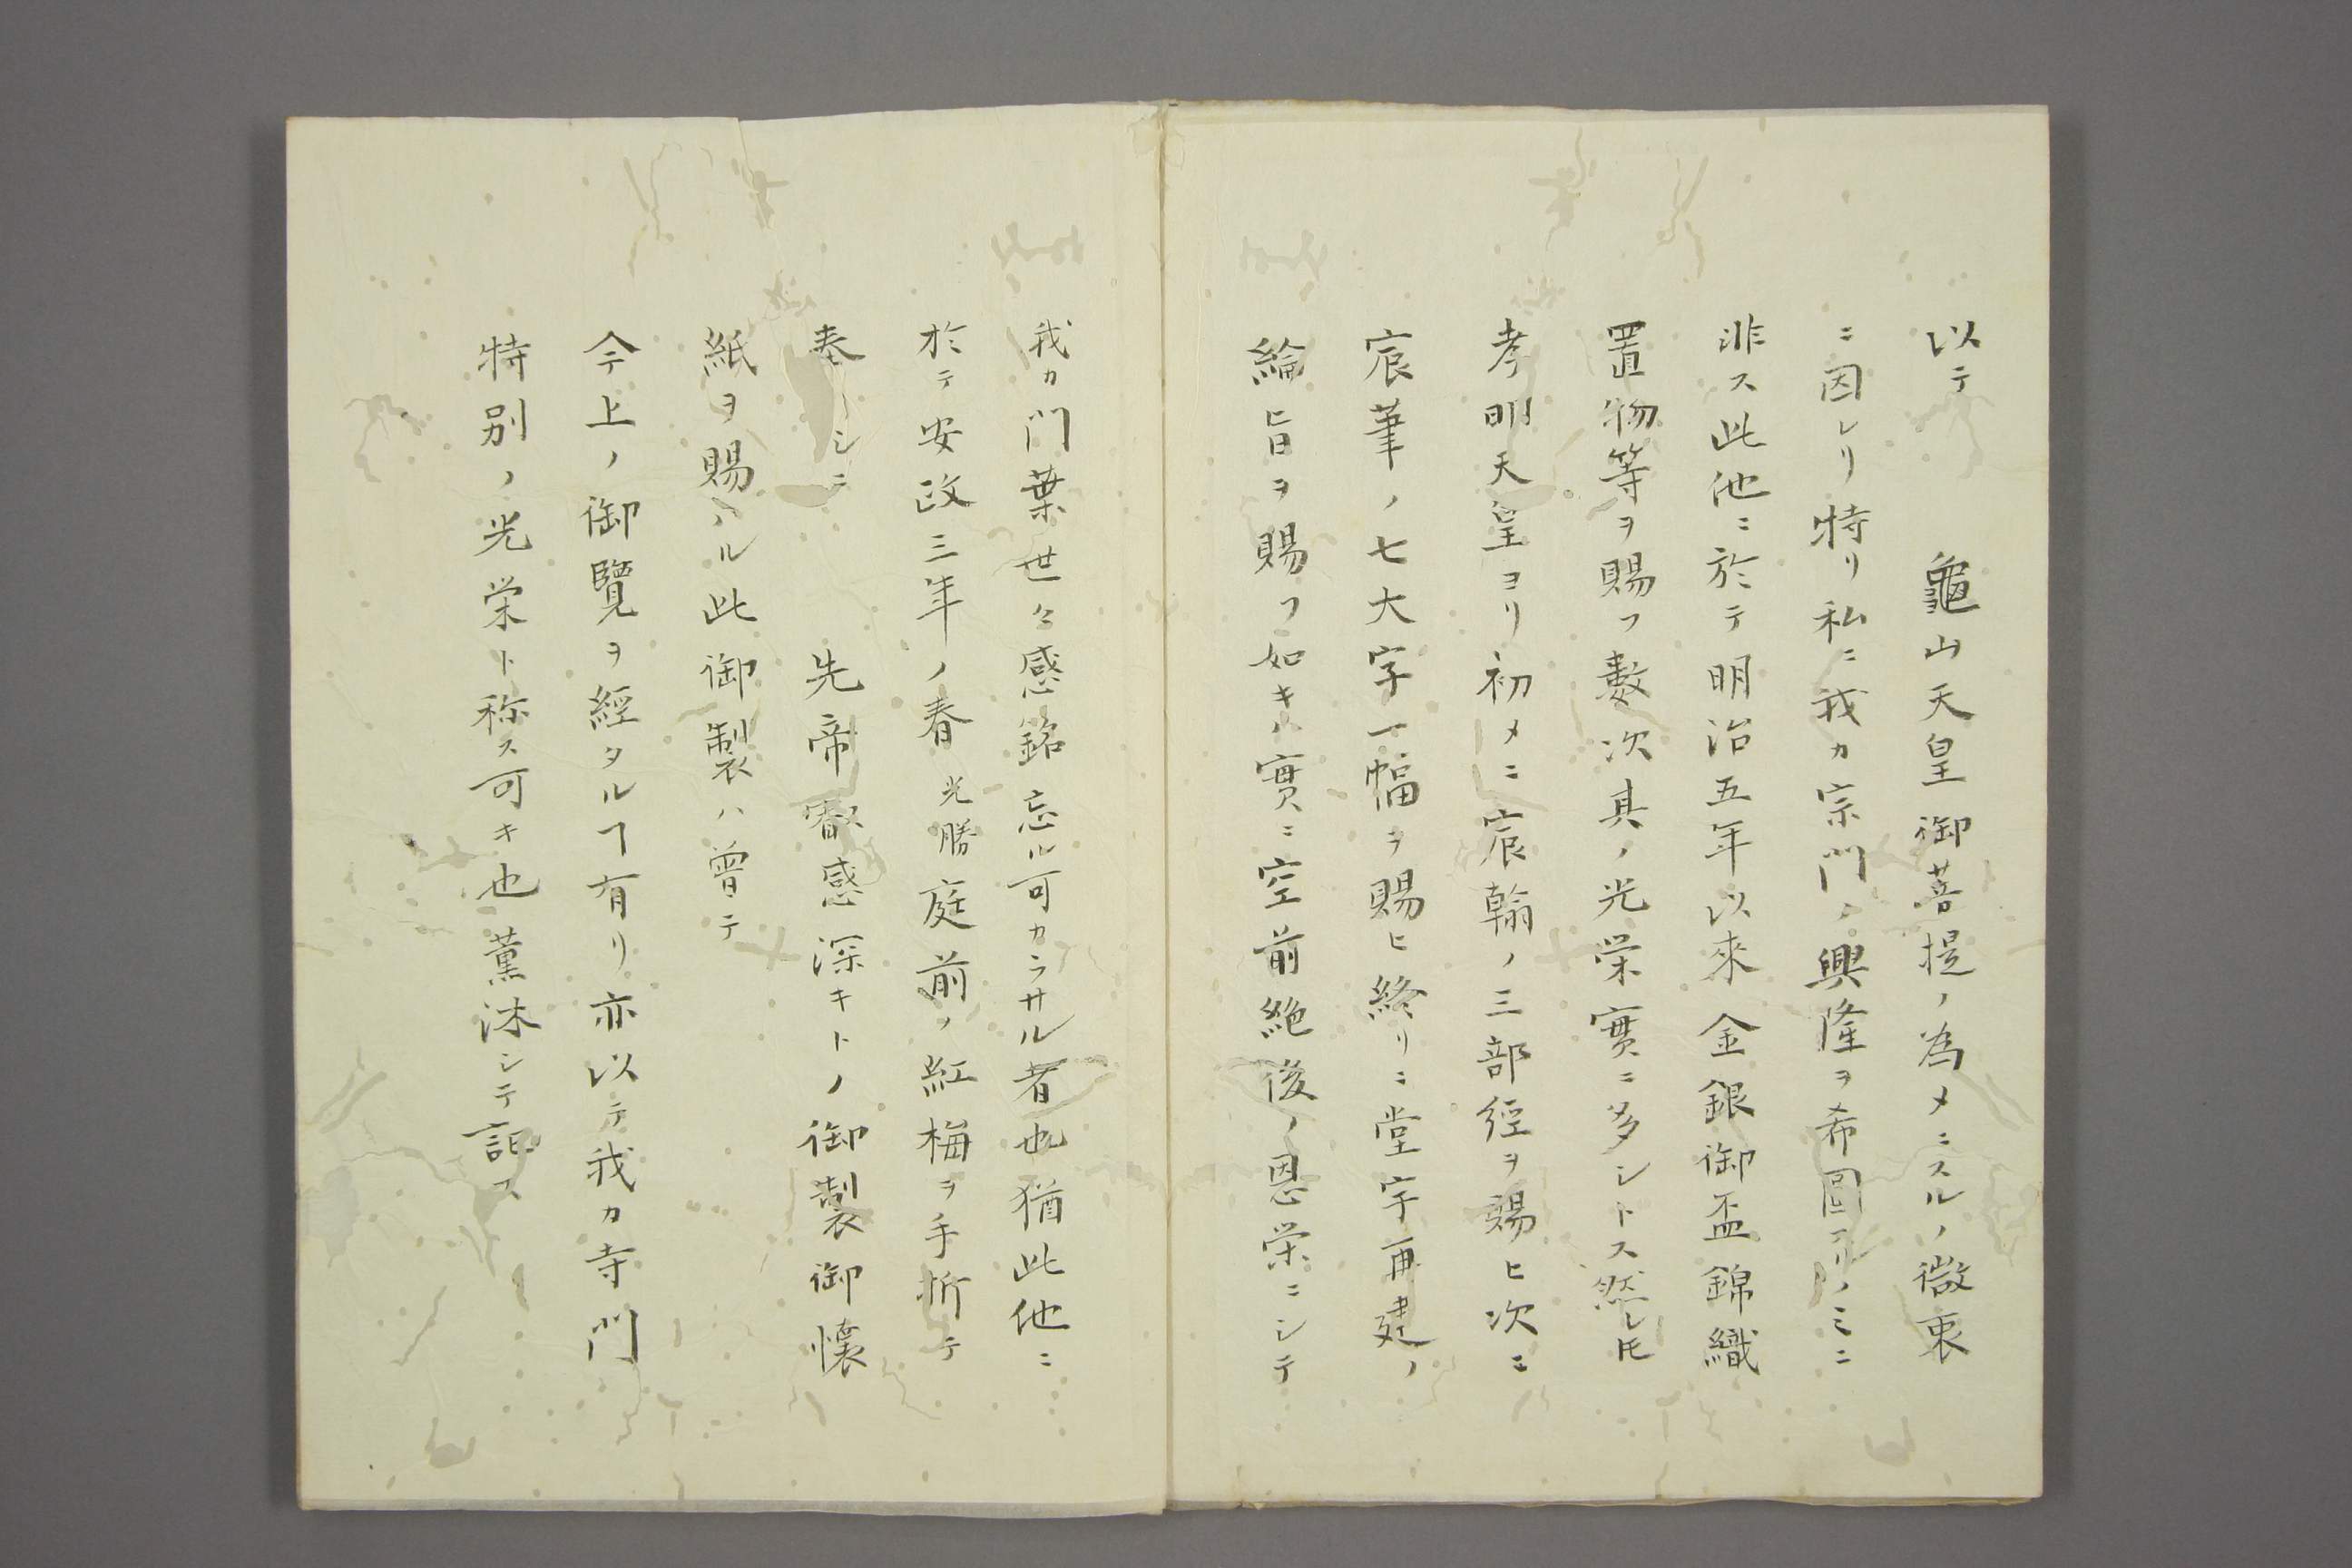 以テ　　龜山天皇御菩提ノ為メニスルノ微衷
ニ因レリ特リ私ニ我カ宗門ノ興隆ヲ希圖スルノミニ
非ス此他ニ於テ明治五年以來金銀御盃錦織
置物等ヲ賜フ數次其ノ光栄實ニ多シトス然レ𪜈
孝明天皇ヨリ初メニ宸翰ノ三部経ヲ賜ヒ次ニ
宸筆ノ七大字一幅ヲ賜ヒ終リニ堂宇再建ノ
綸旨ヲ賜フ如キハ實ニ空前絶後ノ恩栄ニシテ
我カ門葉世々感銘忘ル可カラサル者也猶此他ニ
於テ安政三年ノ春光勝庭前ノ紅梅ヲ手折テ
奉シニ　　先帝叡感深キトノ御製御懐
紙ヲ賜ハル此御製ハ曽テ
今上ノ御覽ヲ經タルヿ有リ亦以テ我カ寺門
特別ノ光栄ト称ス可キ也薫沐シテ記ス